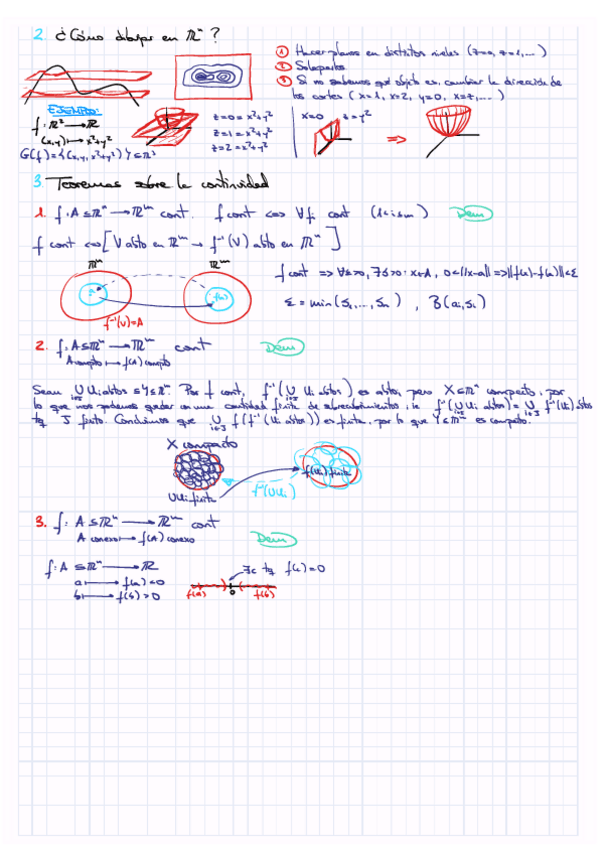 2. ¿Cómo dibujar en ℝⁿ?
① Hacer planos en distintos niveles (z=0, z=1,...)
② Solaparlos
③ Si no sabemos qué objeto es, cambiar la dirección de
los cortes (x=1, x=2, y=0, x=z,...)
EJEMPLO:
f: ℝ² → ℝ
(x,y) ↦ x²+y²
G(f)={(x,y,x²+y²)} ⊆ ℝ³
z=0= x²+y²
z=1= x²+y²
z=2= x²+y²
x=0 z=y²
⇒
3. Teoremas sobre la continuidad
1. f: A⊆ℝⁿ → ℝᵐ cont. f cont ⇔ ∀fᵢ cont (1≤i≤m) Dem
f cont ⇔ [V abto en ℝᵐ → f⁻¹(V) abto en ℝⁿ]
ℝⁿ ℝᵐ
f(a)
f⁻¹(V)=A
f cont ⇒ ∀ε>0, ∃δ>0: x∈A, 0<||x-a|| ⇒ ||f(x)-f(a)||<ε
ε = min(δ₁,...,δₙ), B(aᵢ,δᵢ)
2. f: A⊆ℝⁿ → ℝᵐ cont Dem
A compto ↦ f(A) compto
Sean ∪ Uᵢ abtos ⊆ Y⊆ℝⁿ. Por f cont, f⁻¹(∪ Uᵢ abtos) es abto, pero X⊆ℝⁿ compacto, por
lo que nos podemos quedar con una cantidad finita de abrecubrimientos, ie f⁻¹(∪ Uᵢ abtos) = ∪ f⁻¹(Uᵢ) abtos
tq J finito. Concluimos que ∪ f(f⁻¹(Uᵢ abtos)) es finita, por lo que Y⊆ℝᵐ es compacto.
X compacto
f(Uᵢ) finita
∪Uᵢ finita
f⁻¹(∪Uᵢ)
3. f: A⊆ℝⁿ → ℝᵐ cont
A conexo ↦ f(A) conexo Dem
f: A⊆ℝⁿ → ℝ
a ↦ f(a)<0
b ↦ f(b)>0
∃c tq f(c)=0
f(a) 0 f(b)